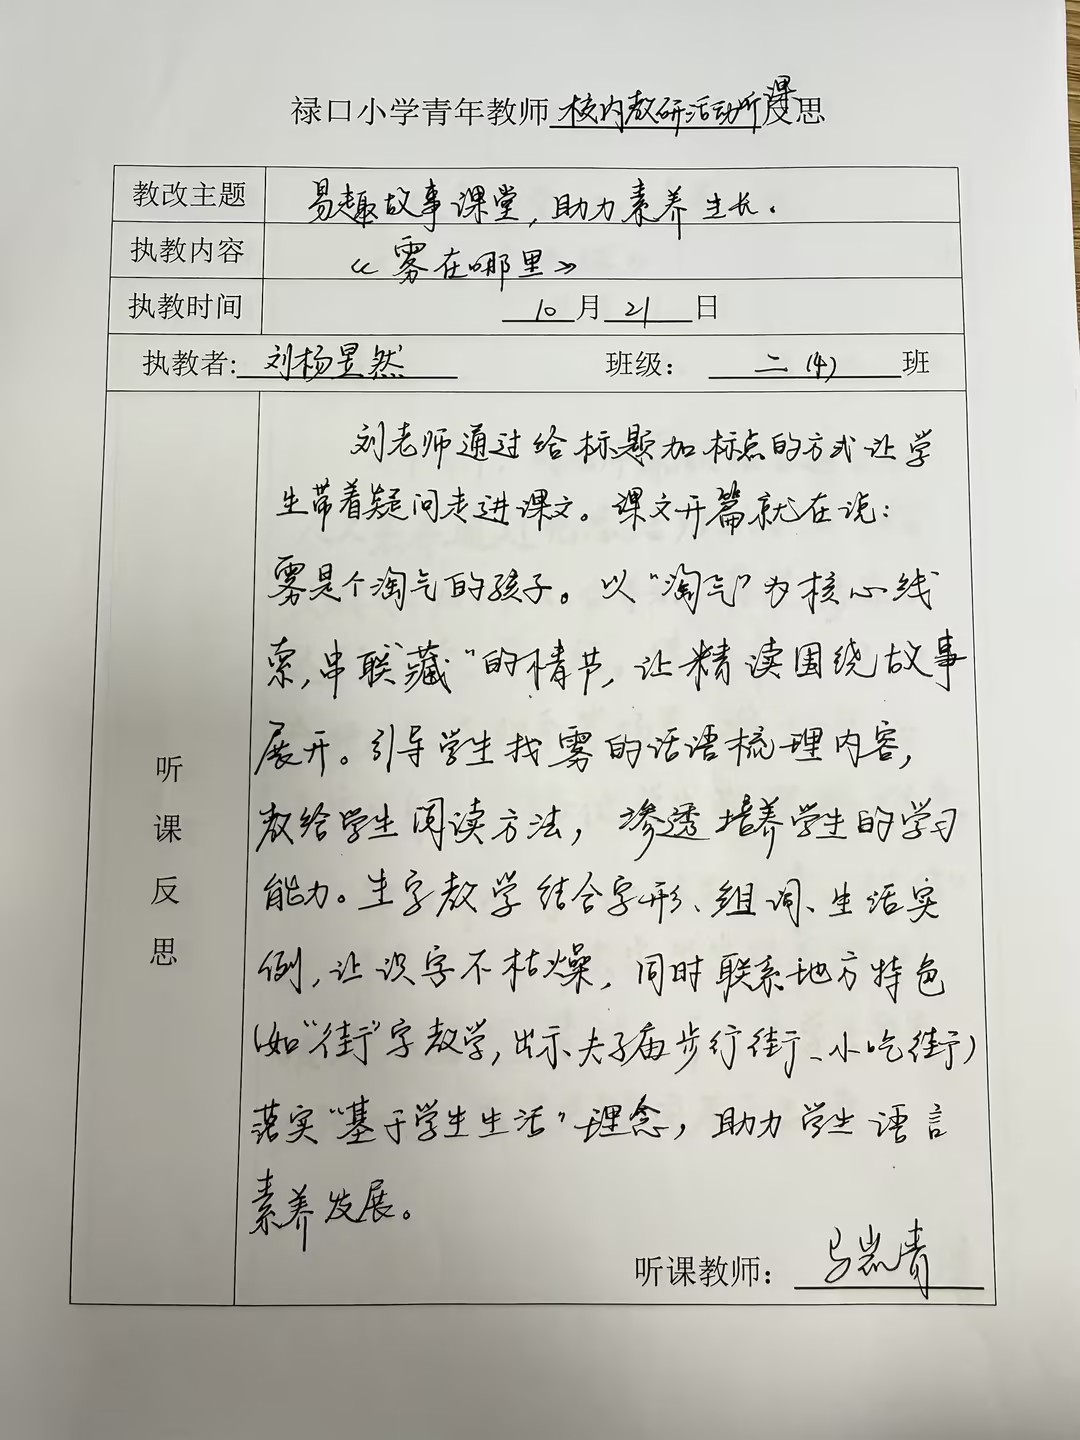 禄口小学青年教师 校内教研活动听课反思
教改主题 易趣故事课堂，助力素养生长。
执教内容 《雾在哪里》
执教时间 10 月 21 日
执教者: 刘杨昱然 班级： 二（4） 班
刘老师通过给标题加标点的方式让学
生带着疑问走进课文。课文开篇就在说：
雾是个淘气的孩子。以“淘气”为核心线
索，串联“藏”的情节，让精读围绕故事
展开。引导学生找雾的话语梳理内容，
教给学生阅读方法，渗透培养学生的学习
能力。生字教学结合字形、组词、生活实
例，让识字不枯燥，同时联系地方特色
（如“街”字教学，出示夫子庙步行街、小吃街）
落实“基于学生生活”理念，助力学生语言
素养发展。
听课反思
听课教师：